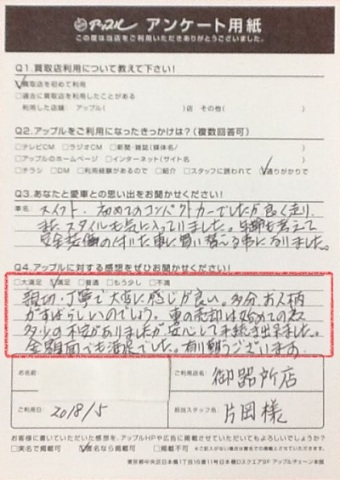 アップル アンケート用紙
この度は当店をご利用いただきありがとうございました。
Q1.買取店利用について教えて下さい!
買取店を初めて利用
過去に買取店を利用したことがある
利用した店舗: アップル( )店 その他( )
Q2.アップルをご利用になったきっかけは?(複数回答可)
テレビCM ラジオCM 新聞・雑誌(媒体名/ )
アップルのホームページ インターネット(サイト名 )
チラシ DM 利用経験があるので 紹介 スタッフに誘われて 通りがかりで
Q3.あなたと愛車との思い出をお聞かせください!
車名: スイフト、初めてのコンパクトカーでしたが良く走り、
またスタイルも気に入っていました。年齢も考えて
安全装備の付いた車に買い替える事になりました。
Q4.アップルに対する感想をぜひお聞かせください!
大満足 満足 普通 もう少し 不満
親切、丁寧で大変に感じが良い。多分、お人柄
がすばらしいのでしょう。車の売却は始めての為
多少の不安がありましたが安心して手続き出来ました。
金額面でも満足でした。有り難うございます。
お名前
ご利用店名: 御器所店
ご利用日: 2018/5
担当スタッフ名: 片岡様
お客様に書いていただいた感想を、アップルHPや広告に掲載させていただいてもよろしいでしょうか?
実名で掲載可 匿名なら掲載可 掲載不可
東京都中央区日本橋1丁目15番11号日本橋DスクエアBF アップルチェーン本部